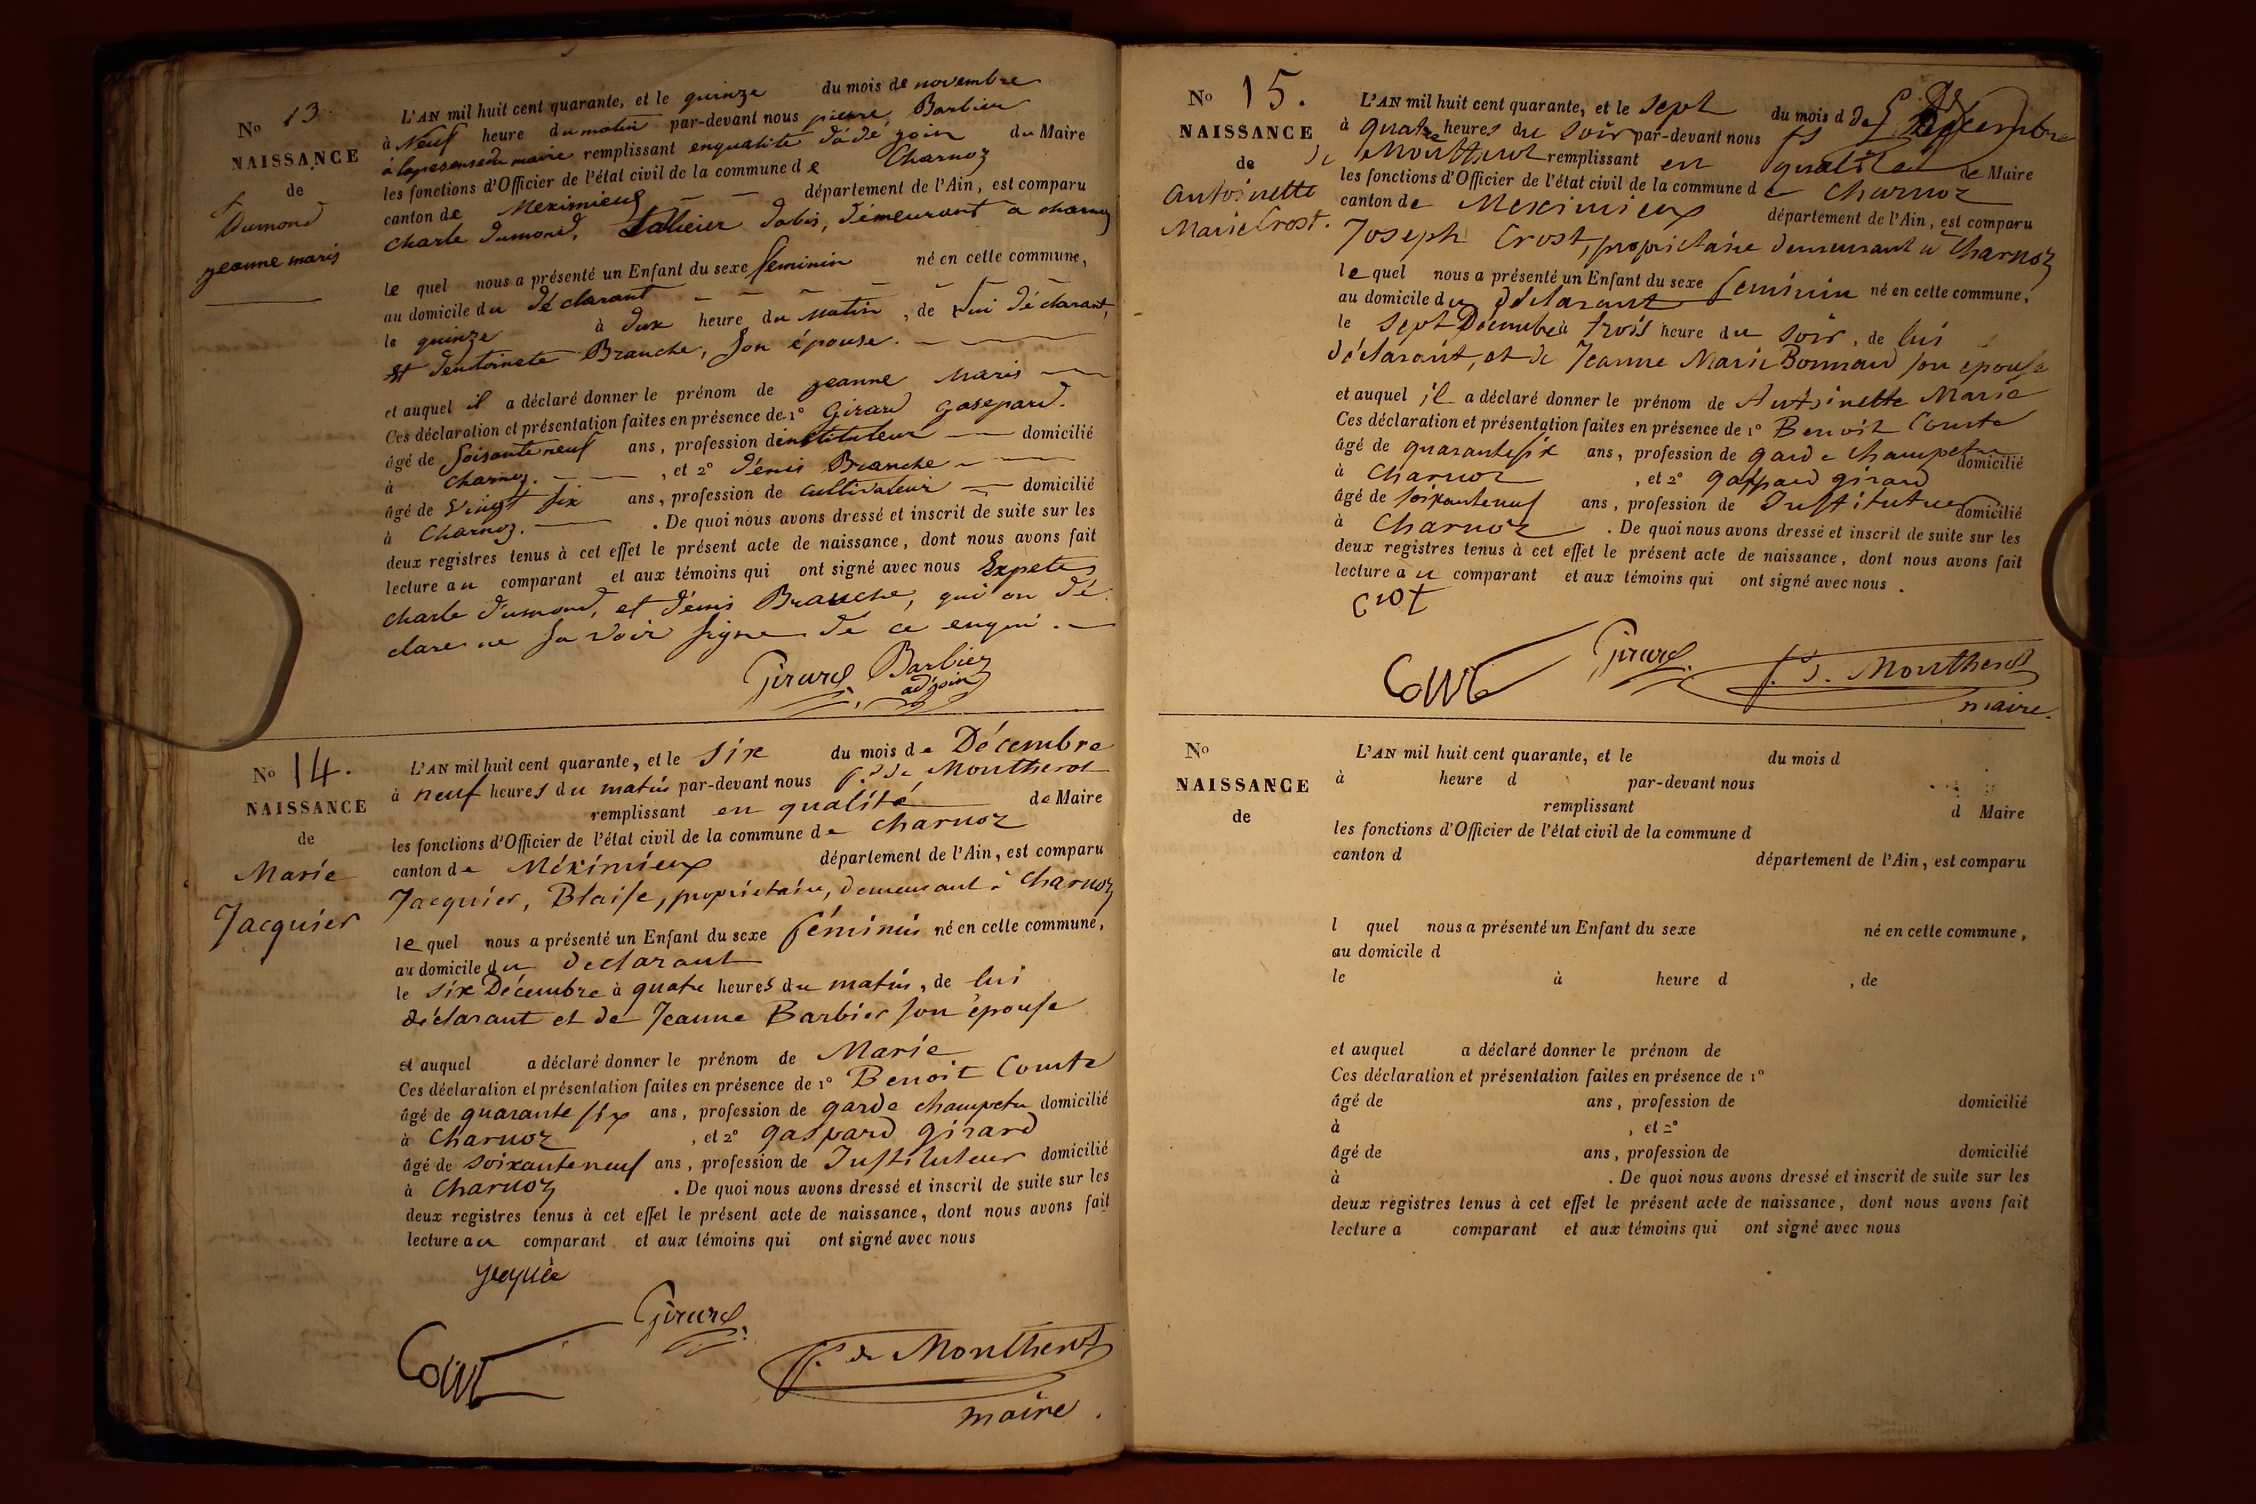 No 13.
NAISSANCE
de
Dumond
jeanne maris
L'AN mil huit cent quarante, et le quinze du mois de novembre
à Neuf heure du matin par-devant nous pierre Barbier
remplissant enqualité d'adejoin du Maire
les fonctions d'Officier de l'état civil de la commune de Charnoz
canton de Meximieux département de l'Ain, est comparu
charle dumond, demeurant a charnoz
le quel nous a présenté un Enfant du sexe feminin né en cette commune,
au domicile du déclarant
le quinze à dux heure du matin, de lui déclarant,
et dentoinete Branche, son épouse.
et auquel il a déclaré donner le prénom de jeanne maris
Ces déclaration et présentation faites en présence de 1° Girard gasepard.
âgé de soisante neuf ans, profession deinstituteur domicilié
à charnoz. , et 2° dénis Branche
âgé de vingt six ans, profession de cultivateur domicilié
à Charnoz. . De quoi nous avons dressé et inscrit de suite sur les
deux registres tenus à cet effet le présent acte de naissance, dont nous avons fait
lecture au comparant et aux témoins qui ont signé avec nous Expetes
charle dumond, et dénis Branche, qui on dé
clare ne savoir signe dé ce enqui.
Girard Barbier
adjoin
No 14.
NAISSANCE
de
Marie
Jacquier
L'AN mil huit cent quarante, et le six du mois de Décembre
à neuf heures du matin par-devant nous de Montherot
remplissant en qualité de Maire
les fonctions d'Officier de l'état civil de la commune de charnoz
canton de Méximieux département de l'Ain, est comparu
Jacquier, Blaise, propriétaire, demeurant à Charnoz
le quel nous a présenté un Enfant du sexe féminin né en cette commune,
au domicile du declarant
le six Décembre à quatre heures du matin, de lui
déclarant et de Jeanne Barbier son épouse
et auquel a déclaré donner le prénom de Marie
Ces déclaration et présentation faites en présence de 1° Benoit Comte
âgé de quarante six ans, profession de garde champetre domicilié
à Charnoz , et 2° gaspard girard
âgé de soixanteneuf ans, profession de Instituteur domicilié
à Charnoz . De quoi nous avons dressé et inscrit de suite sur les
deux registres tenus à cet effet le présent acte de naissance, dont nous avons fait
lecture au comparant et aux témoins qui ont signé avec nous
Girard
Comte de Montherot
maire.
No 15.
NAISSANCE
de
Antoinette
Marie Crost.
L'AN mil huit cent quarante, et le sept du mois d de Décembre
à quatre heures du soir par-devant nous
de Montherot remplissant en qualité de Maire
les fonctions d'Officier de l'état civil de la commune de Charnoz
canton de Meximieux département de l'Ain, est comparu
Joseph Crost, propriétaire demeurant à Charnoz
le quel nous a présenté un Enfant du sexe feminin né en cette commune,
au domicile du déclarant
le sept Décembre à trois heure du soir, de lui
déclarant, et de Jeanne Marie Bonnard son épouse
et auquel il a déclaré donner le prénom de Antoinette Marie
Ces déclaration et présentation faites en présence de 1° Benoit Comte
âgé de quarantesix ans, profession de garde champetre domicilié
à Charnoz , et 2° gaspard girard
âgé de soixanteneuf ans, profession de Instituteur domicilié
à Charnoz . De quoi nous avons dressé et inscrit de suite sur les
deux registres tenus à cet effet le présent acte de naissance, dont nous avons fait
lecture au comparant et aux témoins qui ont signé avec nous.
crot
Comte Girard Montherot
maire.
No
NAISSANCE
de
L'AN mil huit cent quarante, et le du mois d
à heure d par-devant nous
remplissant d Maire
les fonctions d'Officier de l'état civil de la commune d
canton d département de l'Ain, est comparu
l quel nous a présenté un Enfant du sexe né en cette commune,
au domicile d
le à heure d , de
et auquel a déclaré donner le prénom de
Ces déclaration et présentation faites en présence de 1°
âgé de ans, profession de domicilié
à , et 2°
âgé de ans, profession de domicilié
à . De quoi nous avons dressé et inscrit de suite sur les
deux registres tenus à cet effet le présent acte de naissance, dont nous avons fait
lecture a comparant et aux témoins qui ont signé avec nous